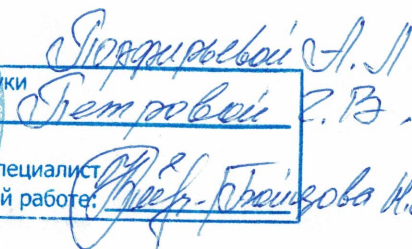 Порфирьевой А. П
уки
Петровой Г. В.
пециалист
й работе: Бойцова Н.